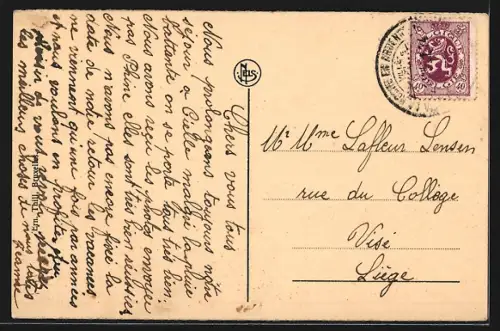 Chers vous tous
Nous prolongeons toujours notre
séjour à Cielle malgré la pluie
battante on se porte tous très bien.
Nous avons reçu les photos envoyées
par Phine elles sont très bien réussies
Nous n'avons pas encore fixé la
date de notre retour les vacances
ne viennent qu'une fois par années
et nous voulons en profiter, un
de vous
les meilleurs choses de nous tous
Jeanne
Nels
Mr Mme Lafleur Lensen
rue du Collège
Visé
Liège